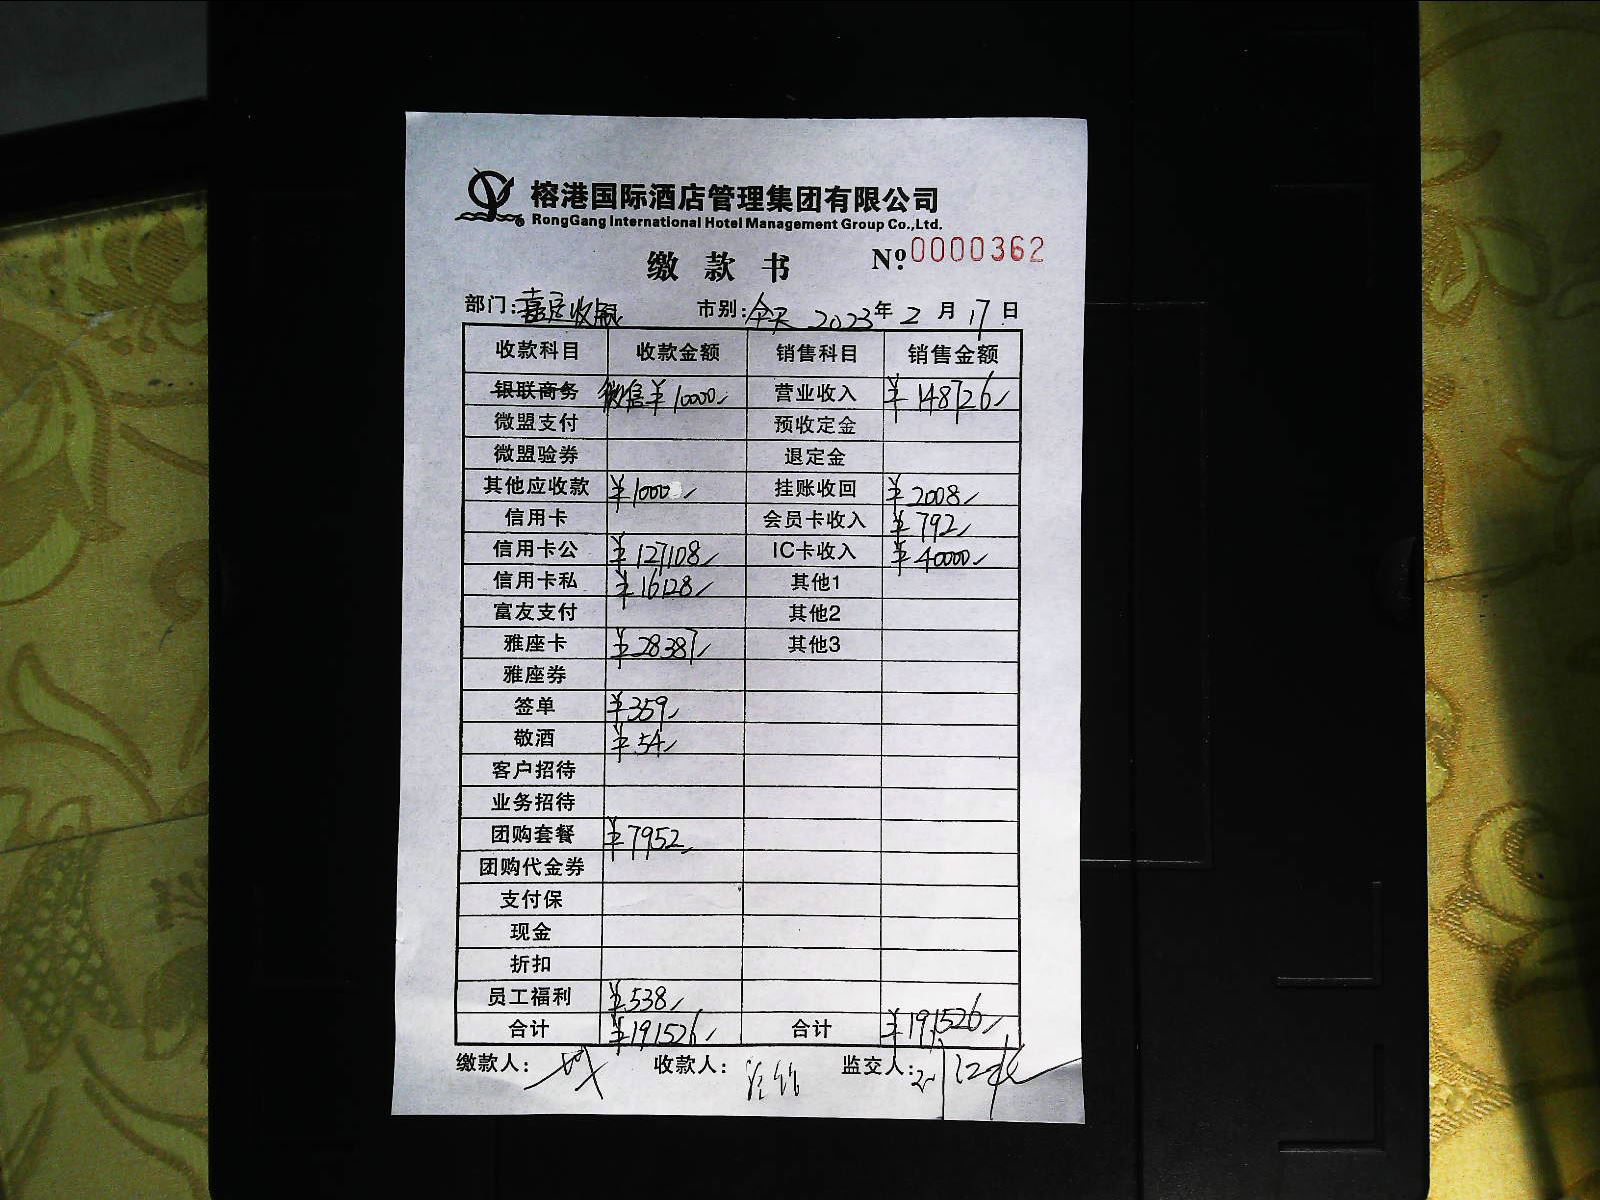 榕港国际酒店管理集团有限公司
RongGang International Hotel Management Group Co.,Ltd.
缴款书 Nº:0000362
部门: 市别:全天 2023年2月17日
收款科目 收款金额 销售科目 销售金额
银联商务 微信¥10000 营业收入 ¥148726
微盟支付 预收定金
微盟验券 退定金
其他应收款 ¥1000 挂账收回 ¥2008
信用卡 会员卡收入 ¥792
信用卡公 ¥127108 IC卡收入 ¥40000
信用卡私 ¥16128 其他1
富友支付 其他2
雅座卡 ¥28387 其他3
雅座券
签单 ¥359
敬酒 ¥54
客户招待
业务招待
团购套餐 ¥7952
团购代金券
支付保
现金
折扣
员工福利 ¥538
合计 ¥191526 合计 ¥191526
缴款人: 收款人: 监交人: